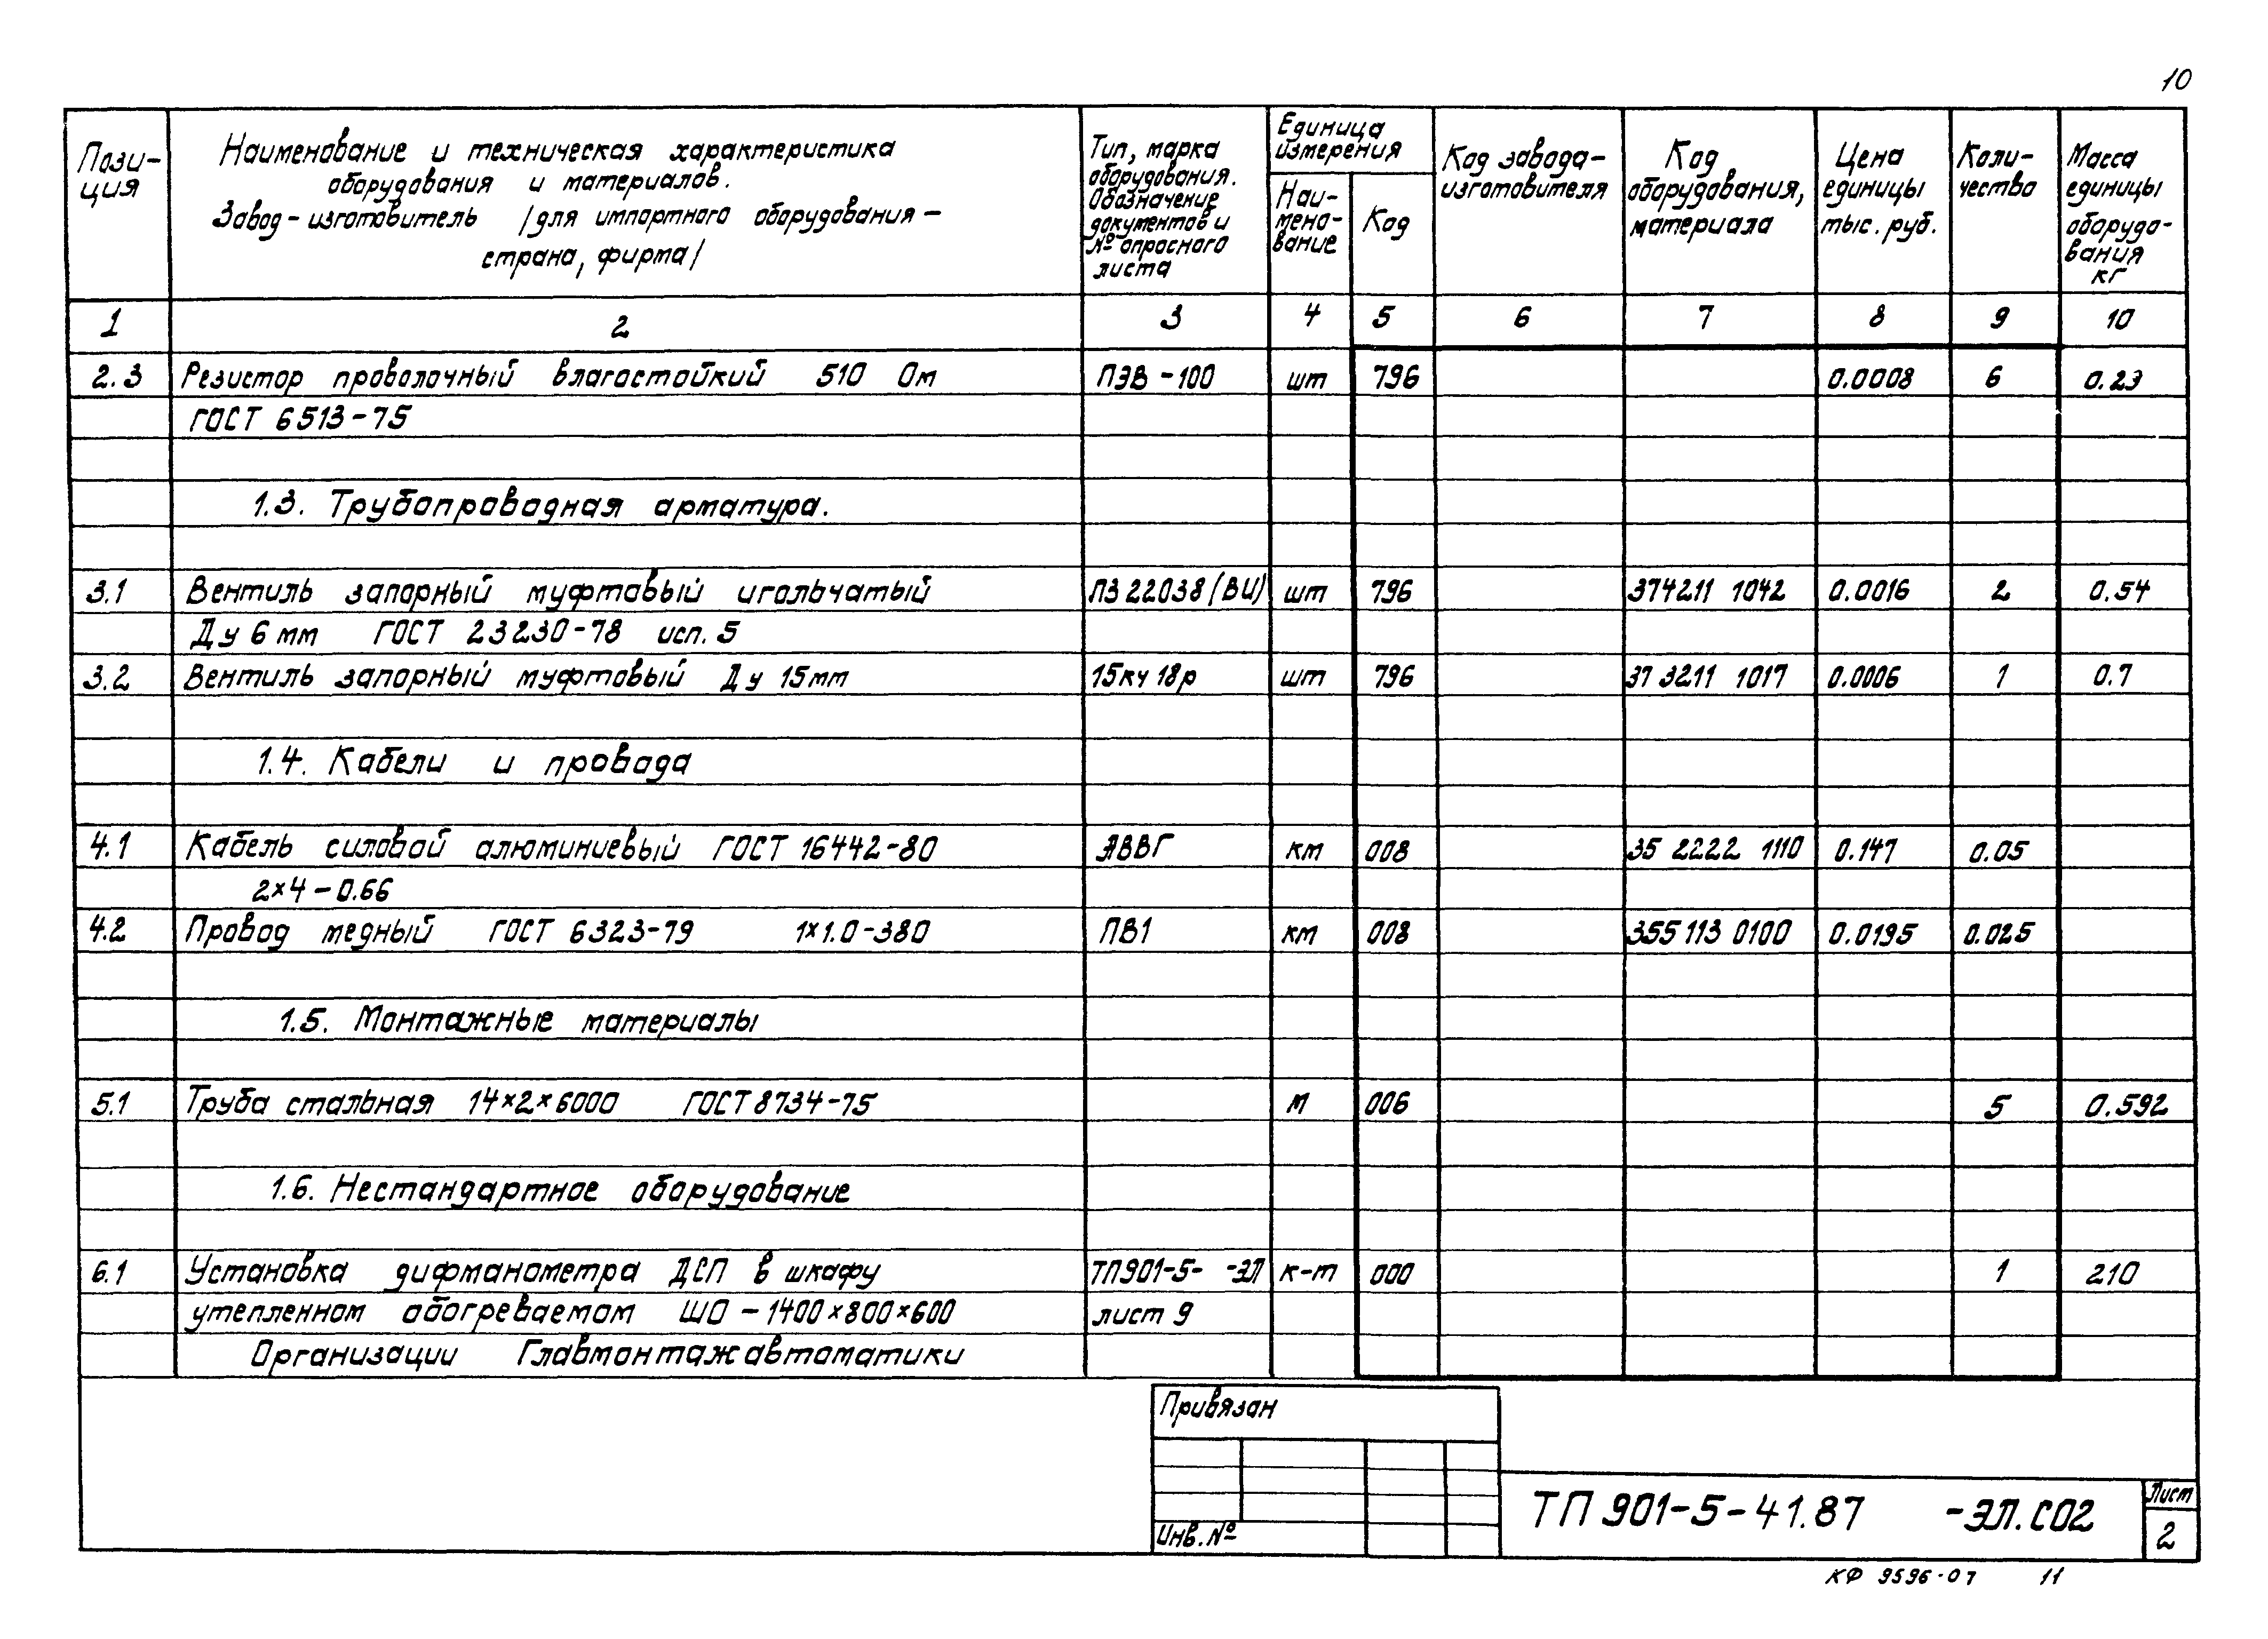 10
Пози-
ция
Наименование и техническая характеристика
оборудования и материалов.
Завод-изготовитель /для импортного оборудования –
страна, фирма/
Тип, марка
оборудования.
Обозначение
документов и
№ опросного
листа
Единица
измерения
Наи-
мено-
вание
Код
Код завода-
изготовителя
Код
оборудования,
материала
Цена
единицы
тыс. руб.
Коли-
чество
Масса
единицы
оборудо-
вания
кг
1 2 3 4 5 6 7 8 9 10
2.3 Резистор проволочный влагостойкий 510 Ом ПЭВ-100 шт 796 0.0008 6 0.23
ГОСТ 6513-75
1.3. Трубопроводная арматура.
3.1 Вентиль запорный муфтовый игольчатый ПЗ 22038 (ВИ) шт 796 374211 1042 0.0016 2 0.54
Ду 6 мм ГОСТ 23230-78 исп. 5
3.2 Вентиль запорный муфтовый Ду 15 мм 15кч 18р шт 796 37 3211 1017 0.0006 1 0.7
1.4. Кабели и провода
4.1 Кабель силовой алюминиевый ГОСТ 16442-80 АВВГ км 008 35 2222 1110 0.147 0.05
2×4-0.66
4.2 Провод медный ГОСТ 6323-79 1×1.0-380 ПВ1 км 008 355 113 0100 0.0195 0.025
1.5. Монтажные материалы
5.1 Труба стальная 14×2×6000 ГОСТ 8734-75 м 006 5 0.592
1.6. Нестандартное оборудование
6.1 Установка дифманометра ДСП в шкафу ТП901-5- -ЭЛ к-т 000 1 210
утепленном обогреваемом ШО-1400×800×600 лист 9
Организации Главмонтажавтоматики
Привязан
Инв. №
ТП 901-5-41.87 -ЭЛ.СО2
Лист
2
КФ 9596-07 11